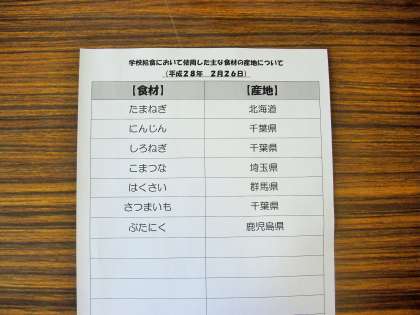 学校給食において使用した主な食材の産地について
（平成２８年　２月２６日）
【食材】　【産地】
たまねぎ　北海道
にんじん　千葉県
しろねぎ　千葉県
こまつな　埼玉県
はくさい　群馬県
さつまいも　千葉県
ぶたにく　鹿児島県